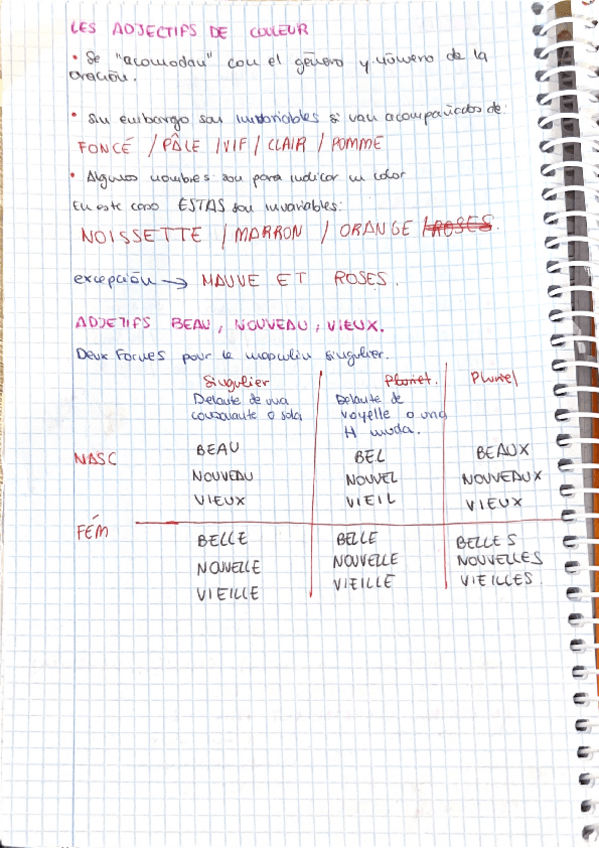 LES ADJECTIFS DE COULEUR
• Se "acomodan" con el género y número de la
oración.
• Sin embargo son invariables si van acompañados de:
FONCÉ / PÂLE / VIF / CLAIR / POMME
• Algunos nombres son para indicar un color
En este caso ESTAS son invariables:
NOISSETTE / MARRON / ORANGE / ROSES.
excepción → MAUVE ET ROSES.
ADJETIFS BEAU, NOUVEAU, VIEUX.
Deux formes pour le masculin singulier.
Singulier Pluriel. Pluriel
Delante de una Delante de
consonante o sola voyelle o una
H muda.
MASC BEAU BEL BEAUX
NOUVEAU NOUVEL NOUVEAUX
VIEUX VIEIL VIEUX
FÉM BELLE BELLE BELLES
NOUVELLE NOUVELLE NOUVELLES
VIEILLE VIEILLE VIEILLES.